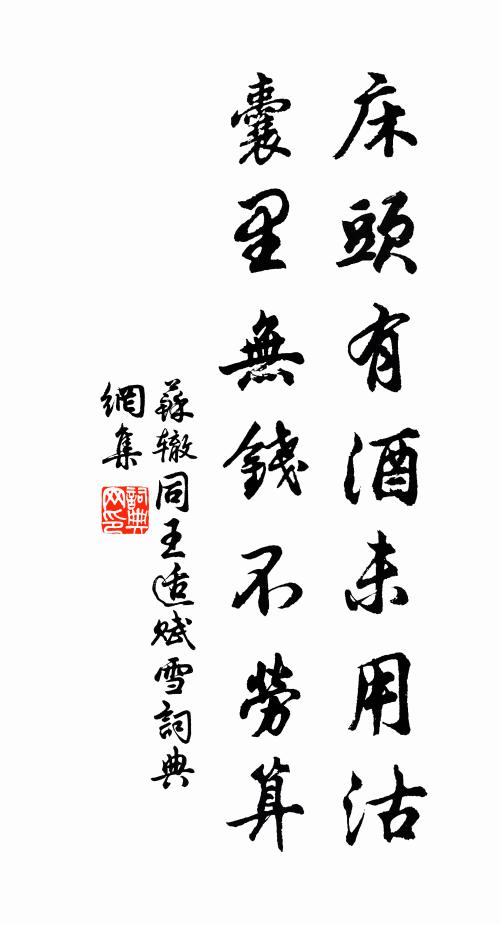 床頭有酒未用沽
囊里無錢不勞算
蘇辙同王适賦雪詞典
網集
詞典
网印